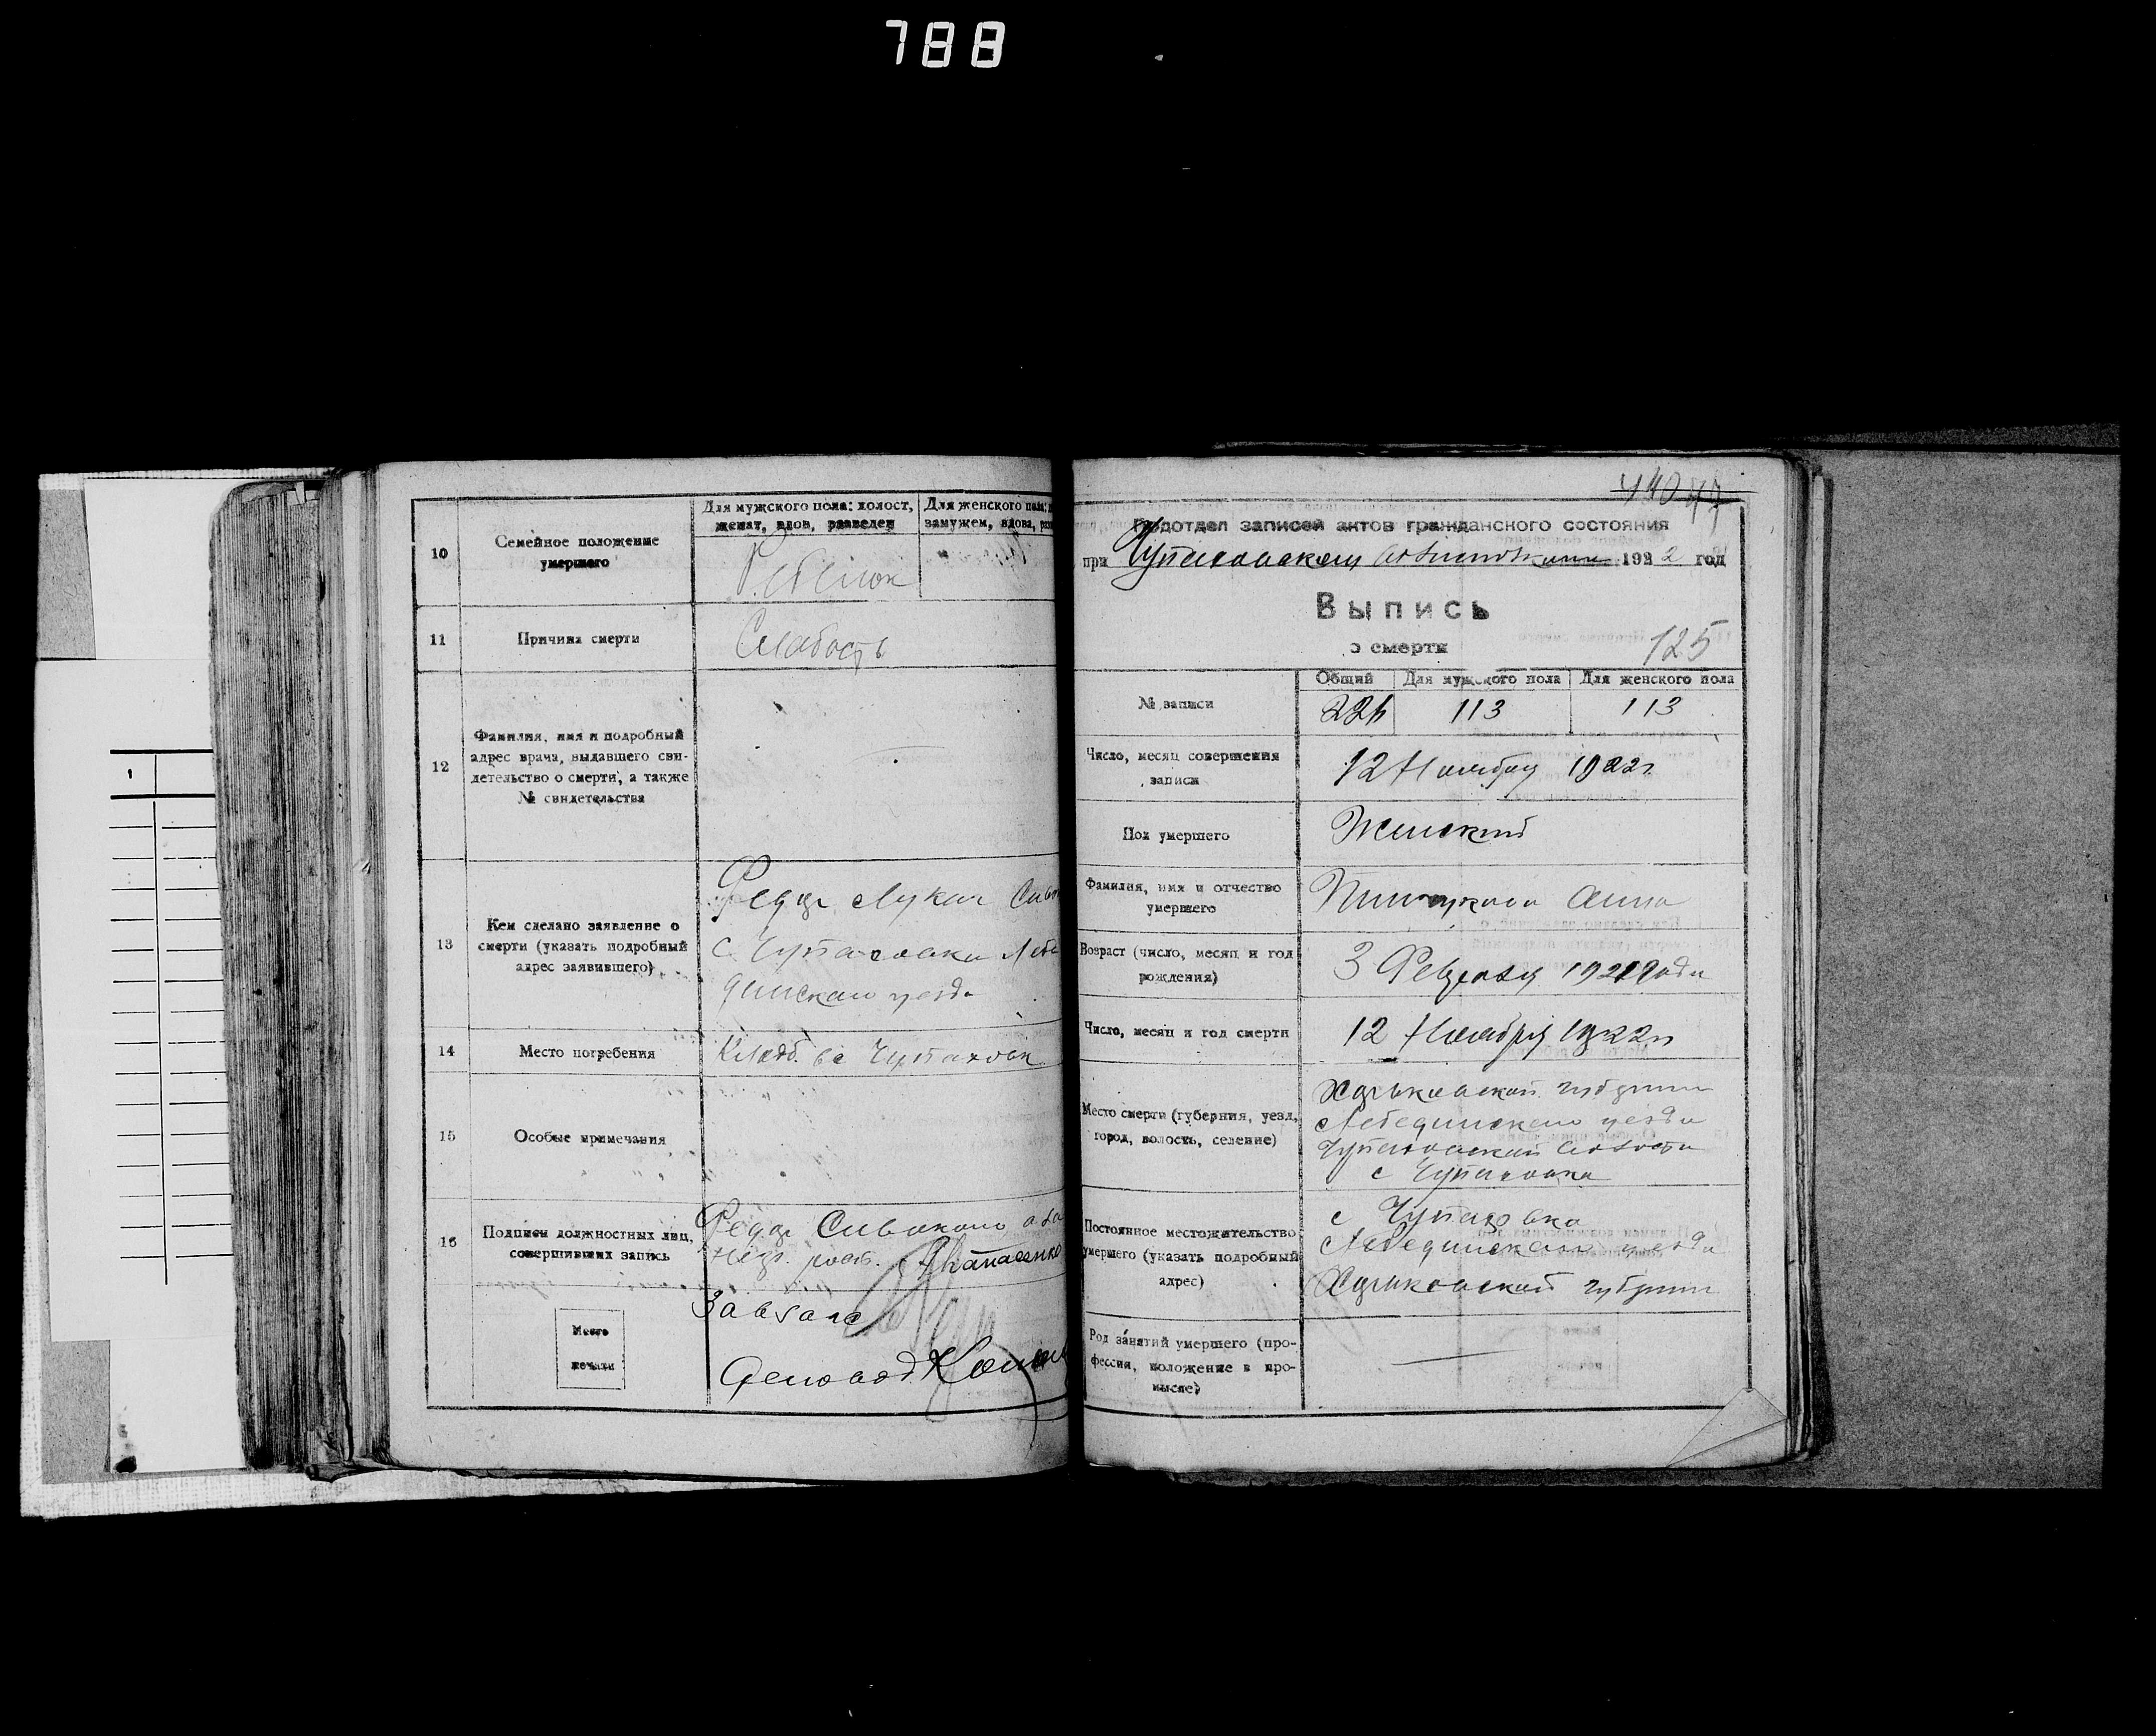 788
10
Семейное положение
умершего
Для мужского пола: холост,
женат, вдов, разведен
Для женского пола:
замужем, вдова,
Ребенок
11
Причина смерти
Слабость
12
Фамилия, имя и подробный
адрес врача, выдавшего сви-
детельство о смерти, а также
№ свидетельства
—
13
Кем сделано заявление о
смерти (указать подробный
адрес заявившего)
Федор Лукич
с. Чупаховки Лебе
динскаго уезда
14
Место погребения
Кладб. в с Чупаховк
15
Особые примечания
16
Подписи должностных лиц,
совершивших запись
Федор Сивоконь, а за
негр. росп. Апанасенко
Завзагс
Деловод
Место
печати
1
440
Подотдел записей актов гражданского состояния
при Чупаховском Волисполкоме 1922 год
Выпись
о смерти
125
№ записи
Общий
Для мужского пола
Для женского пола
226
113
113
Число, месяц совершения
записи
12 Ноября 1922г
Пол умершего
Женский
Фамилия, имя и отчество
умершего
Анна
Возраст (число, месяц и год
рождения)
3 Февраля 1921 года
Число, месяц и год смерти
12 Ноября 1922г
Место смерти (губерния, уезд,
город, волость, селение)
Харьковской губернии
Лебединскаго уезда
Чупаховской волости
с Чупаховка
Постоянное местожительство
умершего (указать подробный
адрес)
с Чупаховка
Лебединскаго уезда
Харьковской губернии
Род занятий умершего (про-
фессия, положение в про-
мысле)
—